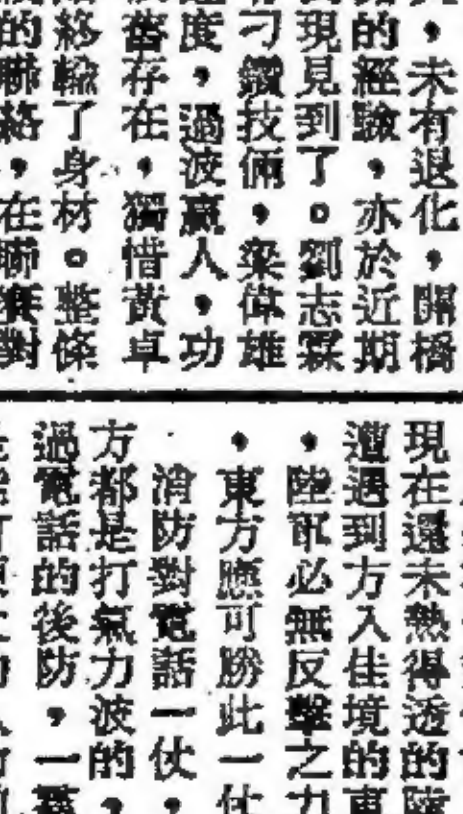 ，未有退化，關橋
的經驗，亦於近期
現見到了。劉志霖
刁鑽技倆，梁偉雄
度，過波贏人，功
舊存在，獨惜黃卓
終輸了身材。整條
的聯絡，在聯賽對
現在還未熱得透的陸
遭遇到方入佳境的東
，陸軍必無反擊之力
，東方應可勝此一仗
消防對電話一仗，
方都是打氣力波的，
過電話的後防，一